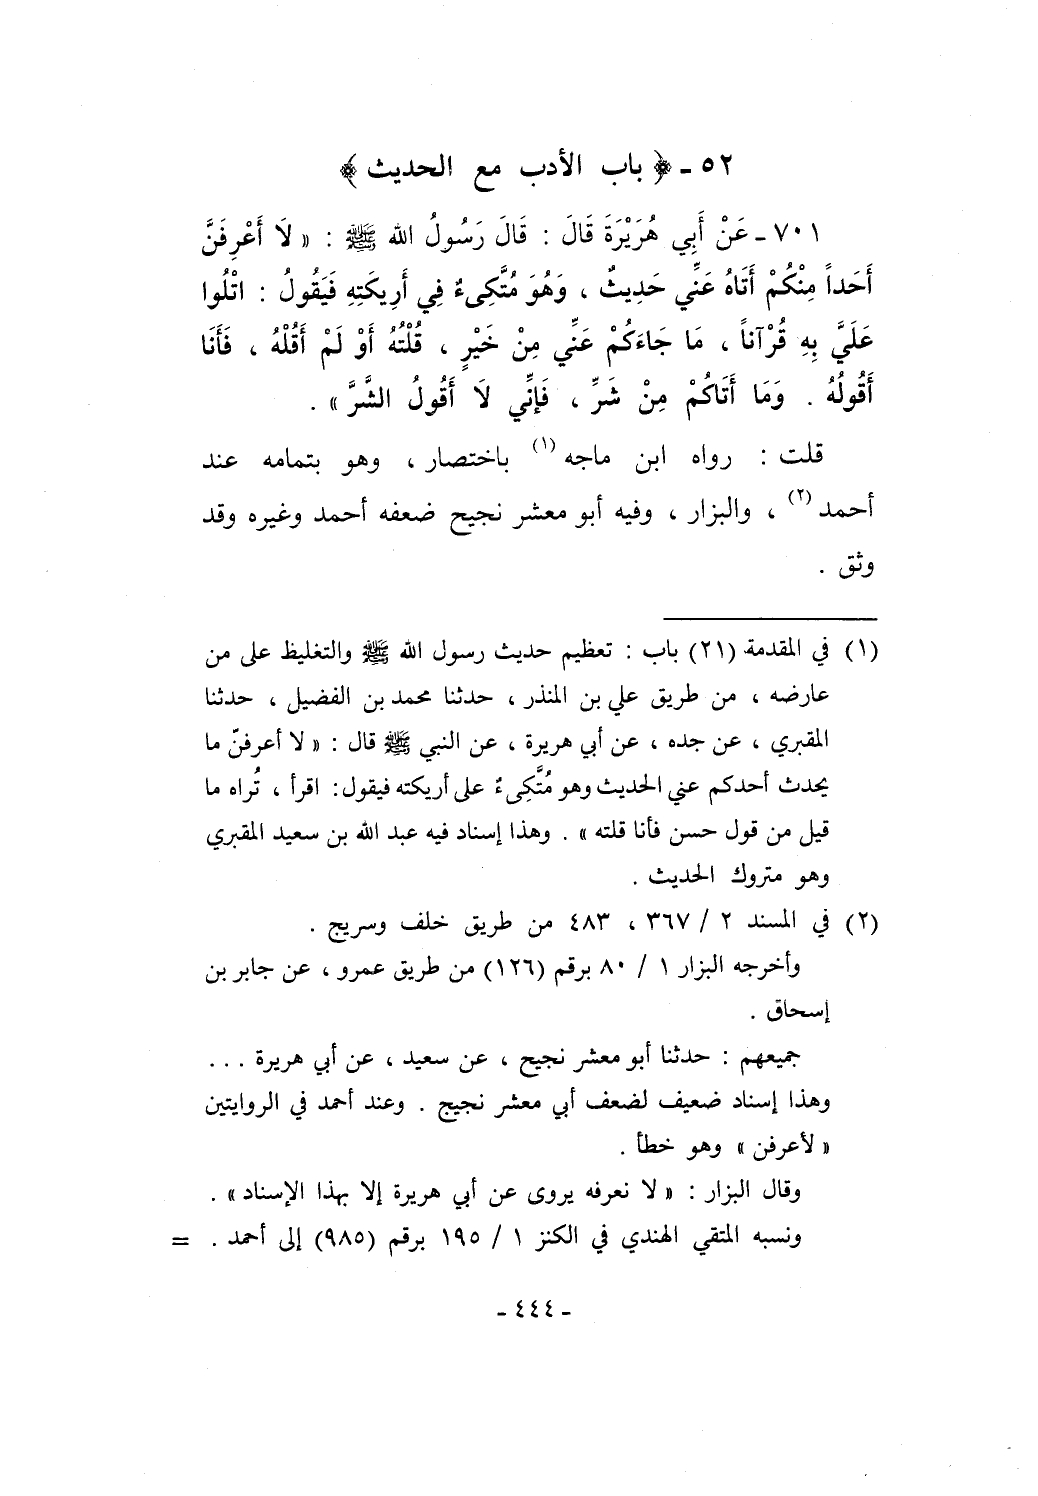 ٥٢ - ﴿ باب الأدب مع الحديث ﴾
٧٠١ - عَنْ أَبِي هُرَيْرَةَ قَالَ : قَالَ رَسُولُ الله ﷺ : « لَا أَعْرِفَنَّ
أَحَداً مِنْكُمْ أَتَاهُ عَنِّي حَدِيثٌ ، وَهُوَ مُتَّكِىءٌ فِي أَرِيكَتِهِ فَيَقُولُ : اتْلُوا
عَلَيَّ بِهِ قُرْآناً ، مَا جَاءَكُمْ عَنِّي مِنْ خَيْرٍ ، قُلْتُهُ أَوْ لَمْ أَقُلْهُ ، فَأَنَا
أَقُولُهُ . وَمَا أَتَاكُمْ مِنْ شَرٍّ ، فَإِنِّي لَا أَقُولُ الشَّرَّ » .
قلت : رواه ابن ماجه (١) باختصار ، وهو بتمامه عند
أحمد (٢) ، والبزار ، وفيه أبو معشر نجيح ضعفه أحمد وغيره وقد
وثق .
(١) في المقدمة (٢١) باب : تعظيم حديث رسول الله ﷺ والتغليظ على من
عارضه ، من طريق علي بن المنذر ، حدثنا محمد بن الفضيل ، حدثنا
المقبري ، عن جده ، عن أبي هريرة ، عن النبي ﷺ قال : « لا أعرفنّ ما
يحدث أحدكم عني الحديث وهو مُتَّكِىءٌ على أريكته فيقول : اقرأ ، تُراه ما
قيل من قول حسن فأنا قلته » . وهذا إسناد فيه عبد الله بن سعيد المقبري
وهو متروك الحديث .
(٢) في المسند ٢ / ٣٦٧ ، ٤٨٣ من طريق خلف وسريج .
وأخرجه البزار ١ / ٨٠ برقم (١٢٦) من طريق عمرو ، عن جابر بن
إسحاق .
جميعهم : حدثنا أبو معشر نجيح ، عن سعيد ، عن أبي هريرة . . .
وهذا إسناد ضعيف لضعف أبي معشر نجيح . وعند أحمد في الروايتين
« لأعرفن » وهو خطأ .
وقال البزار : « لا نعرفه يروى عن أبي هريرة إلا بهذا الإسناد » .
ونسبه المتقي الهندي في الكنز ١ / ١٩٥ برقم (٩٨٥) إلى أحمد . =
- ٤٤٤ -